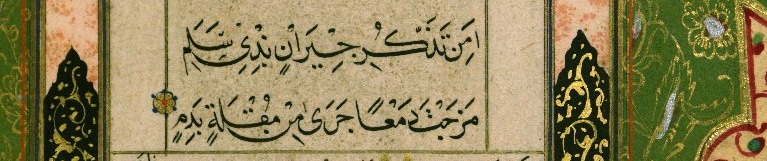 اَمِنْ تَذَكُّرِ جِيرَانٍ بِذِي سَلَمِ
مَزَجْتَ دَمْعًا جَرَى مِنْ مُقْلَةٍ بِدَمِ